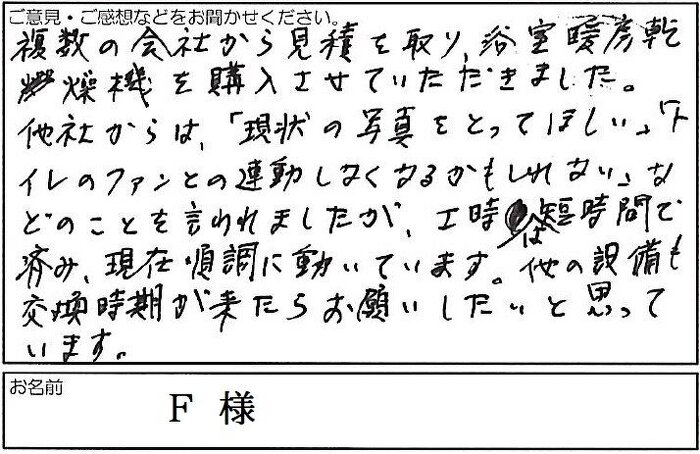 ご意見・ご感想などをお聞かせください。
複数の会社から見積を取り、浴室暖房乾
燥機を購入させていただきました。
他社からは、「現状の写真をとってほしい」、「ト
イレのファンとの連動しなくなるかもしれない」な
どのことを言われましたが、工時は短時間で
済み、現在順調に動いています。他の設備も
交換時期が来たらお願いしたいと思って
います。
お名前
F 様